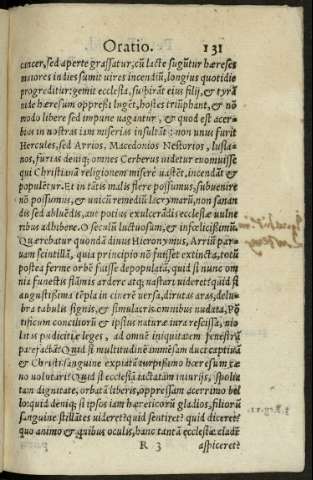 Oratio. 131
cancer, sed aperte grassatur, cũ lacte sugũtur hæreses
maiores in dies sumit uires incendiũ, longius quotidie
progreditur: gemit ecclesia, suspirãt eius filij, & tyrã
nide hæresum oppressi lugẽt, hostes triũphant, & nõ
modo libere sed impune uagantur, & quod est acer-
bius in nostras iam miserias insultãt: non unus furit
Hercules, sed Arrios, Macedonios Nestorios, Iulia-
nos, furias deniq; omnes Cerberus uidetur euomuisse
qui Christianã religionem miserè uastẽt, incendãt &
populẽtur. Et in tãtis malis flere possumus, subuenire
nõ possumus, & unicũ remediũ lacrymarũ, non sanan
dis sed abluẽdis, aut potius exulcerãdis ecclesiæ uulne
ribus adhibere. O seculũ luctuosum, & infelicissimũ.
Quærebatur quondã diuus Hieronymus, Arriũ par-
uam scintillã, quia principio nõ fuisset extincta, totũ
postea ferme orbẽ fuisse depopulatã, quid si nunc om
nia funestis flãmis ardere atq; nostari uideret? quid si
augustissima tẽpla in cinerẽ uersa, dirutas aras, delu-
bra tabulis signis, & simulacris omnibus nudata, Põ
tificum concilitorũ & ipsius naturæ iura rescissa, uio
litas pudicitiæ leges, ad omnẽ iniquitatem fenestrã
patefactã? Quid si multitudinẽ immẽsam duci captiuã
& Christi sanguine expiatã turpissimo hæresum cœ
no uolutari? Quid si ecclesiã iactatam iniurijs, spolia
tam dignitate, orbatã liberis, oppressam acerrimo bel
lo: quid deniq; si ipsos iam hæreticorũ gladios, filiorũ
sanguine stillãtes uideret? quid sentiret? quid diceret?
quo animo & quibus oculis, hanc tantã ecclesiæ cladẽ
R 3 aspiceret?